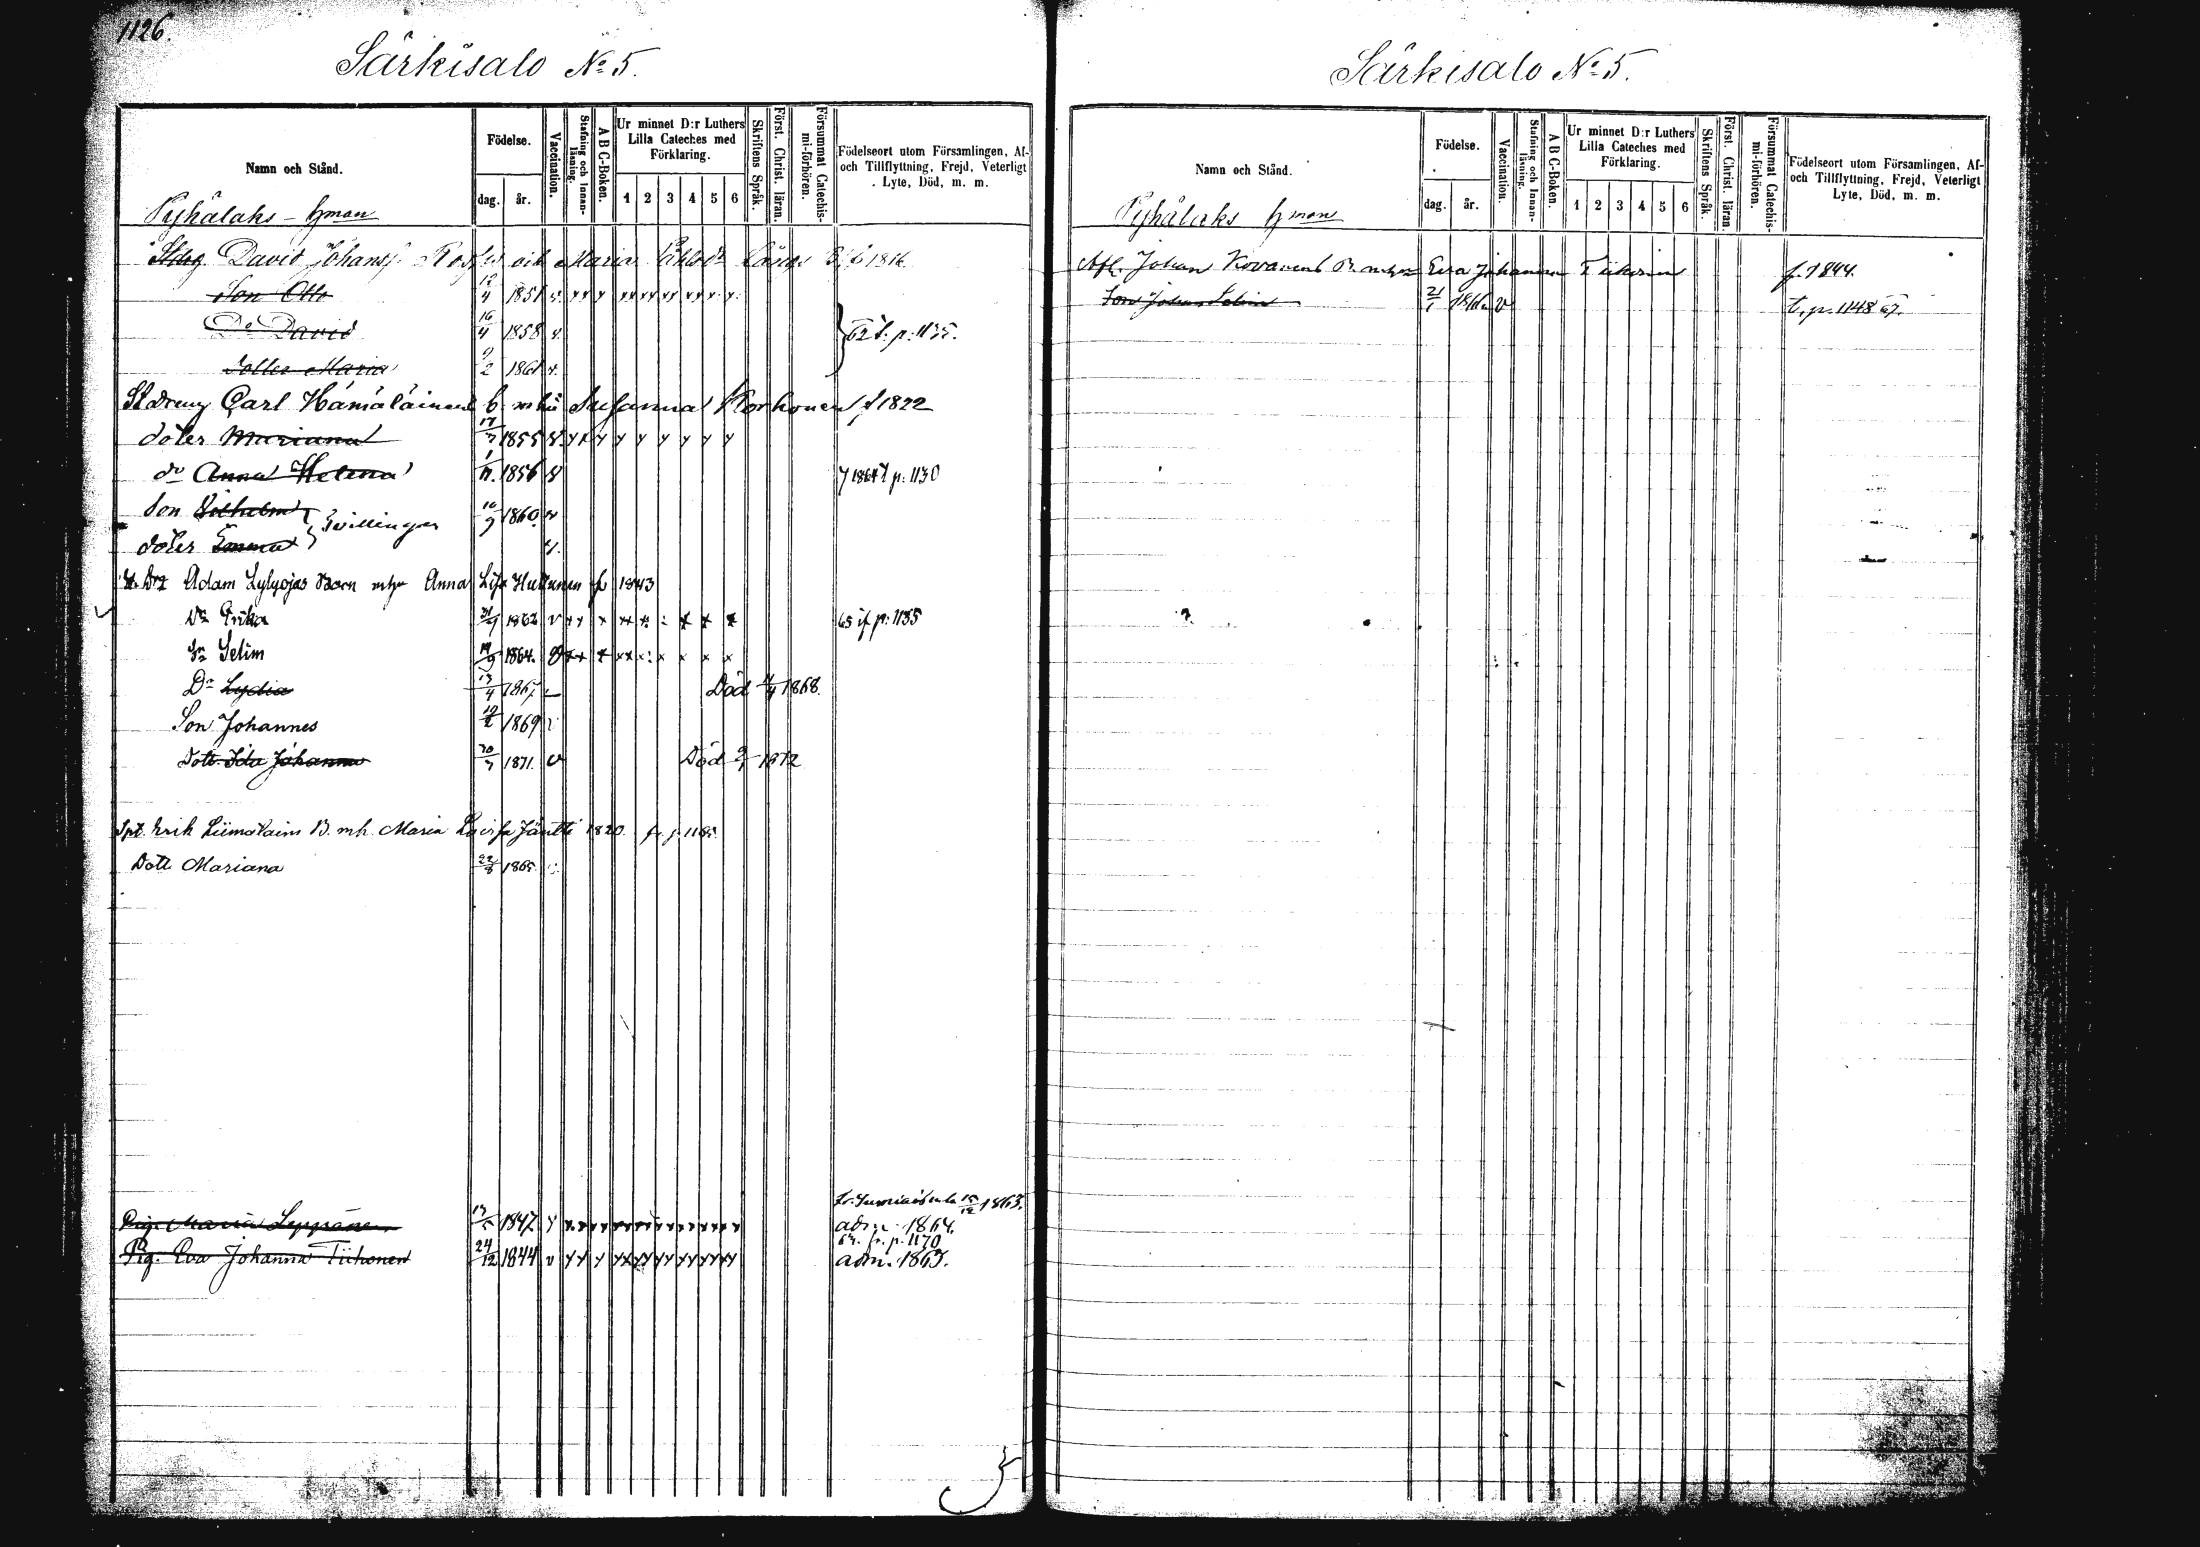 1126.
Särkisalo No 5.
Namn och Stånd.
Födelse.
dag. år.
Vaccination.
Stafning och Innan-läsning.
A B C-Boken.
Ur minnet D:r Luthers Lilla Cateches med Förklaring.
1 2 3 4 5 6
Skriftens Språk.
Först. Christ. läran.
Försummat Catechis-mi-förhören.
Födelseort utom Församlingen, Af- och Tillflyttning, Frejd, Veterligt Lyte, Död, m. m.
Pyhälaks hman
David Johanss. Maria 1816
Son Otto 12/4 1851 v.
Do David 16/4 1858 v. 62 t. p. 1135.
Dotter Maria 9/2 1861 v.
Carl Hämäläinens b. m hu Susanna Korhonen f 1822
doter Mariana 17/7 1855 v
do Anna Helena 1/11. 1856 v t p. 1130
Son Vilhelm } Tvillingar 10/9 1860. v
doter Emma v.
Adam Lylyojas Barn mhr Anna Lisa Hu f 1843
Dr Erika 1862 v 65 if p. 1135
Sn Selim 19/9 1864. v
Dr Lydia 13/4 1867 Död 4/4 1868.
Son Johannes 1869
Dott. Ida Johanna 30/7 1871. v Död 9/1 1872
Erik Liimatain B. mh. Maria Lovisa Jäntti 1820 fr. p. 1165.
Dott. Mariana 22/8 1865.
fr. Sumiais 15/12 1863.
Pig. Maria Leppänen 1847 v adm. 1864.
fr. p. 1170
Pig. Eva Johanna Tiihonen 24/12 1844 v adm. 1863.
Särkisalo No 5.
Namn och Stånd.
Födelse.
dag. år.
Vaccination.
Stafning och Innan-läsning.
A B C-Boken.
Ur minnet D:r Luthers Lilla Cateches med Förklaring.
1 2 3 4 5 6
Skriftens Språk.
Först. Christ. läran.
Försummat Catechis-mi-förhören.
Födelseort utom Församlingen, Af- och Tillflyttning, Frejd, Veterligt Lyte, Död, m. m.
Pyhälaks hmans
Afl. Johan Kovanens B. mhr Eva Johanna Tiihonen f. 1844.
Son Johan Selim 21/1 1866 v t. p. 1148 67.